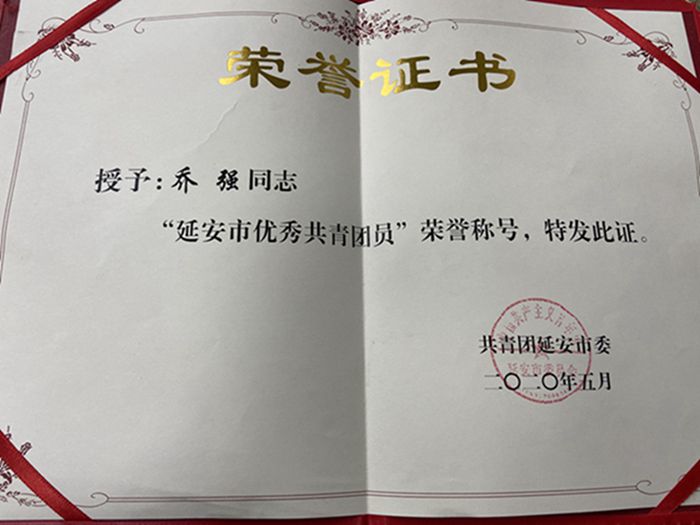 荣誉证书
授予：乔 强同志
“延安市优秀共青团员”荣誉称号，特发此证。
共青团延安市委
二〇二〇年五月
延安市委员会